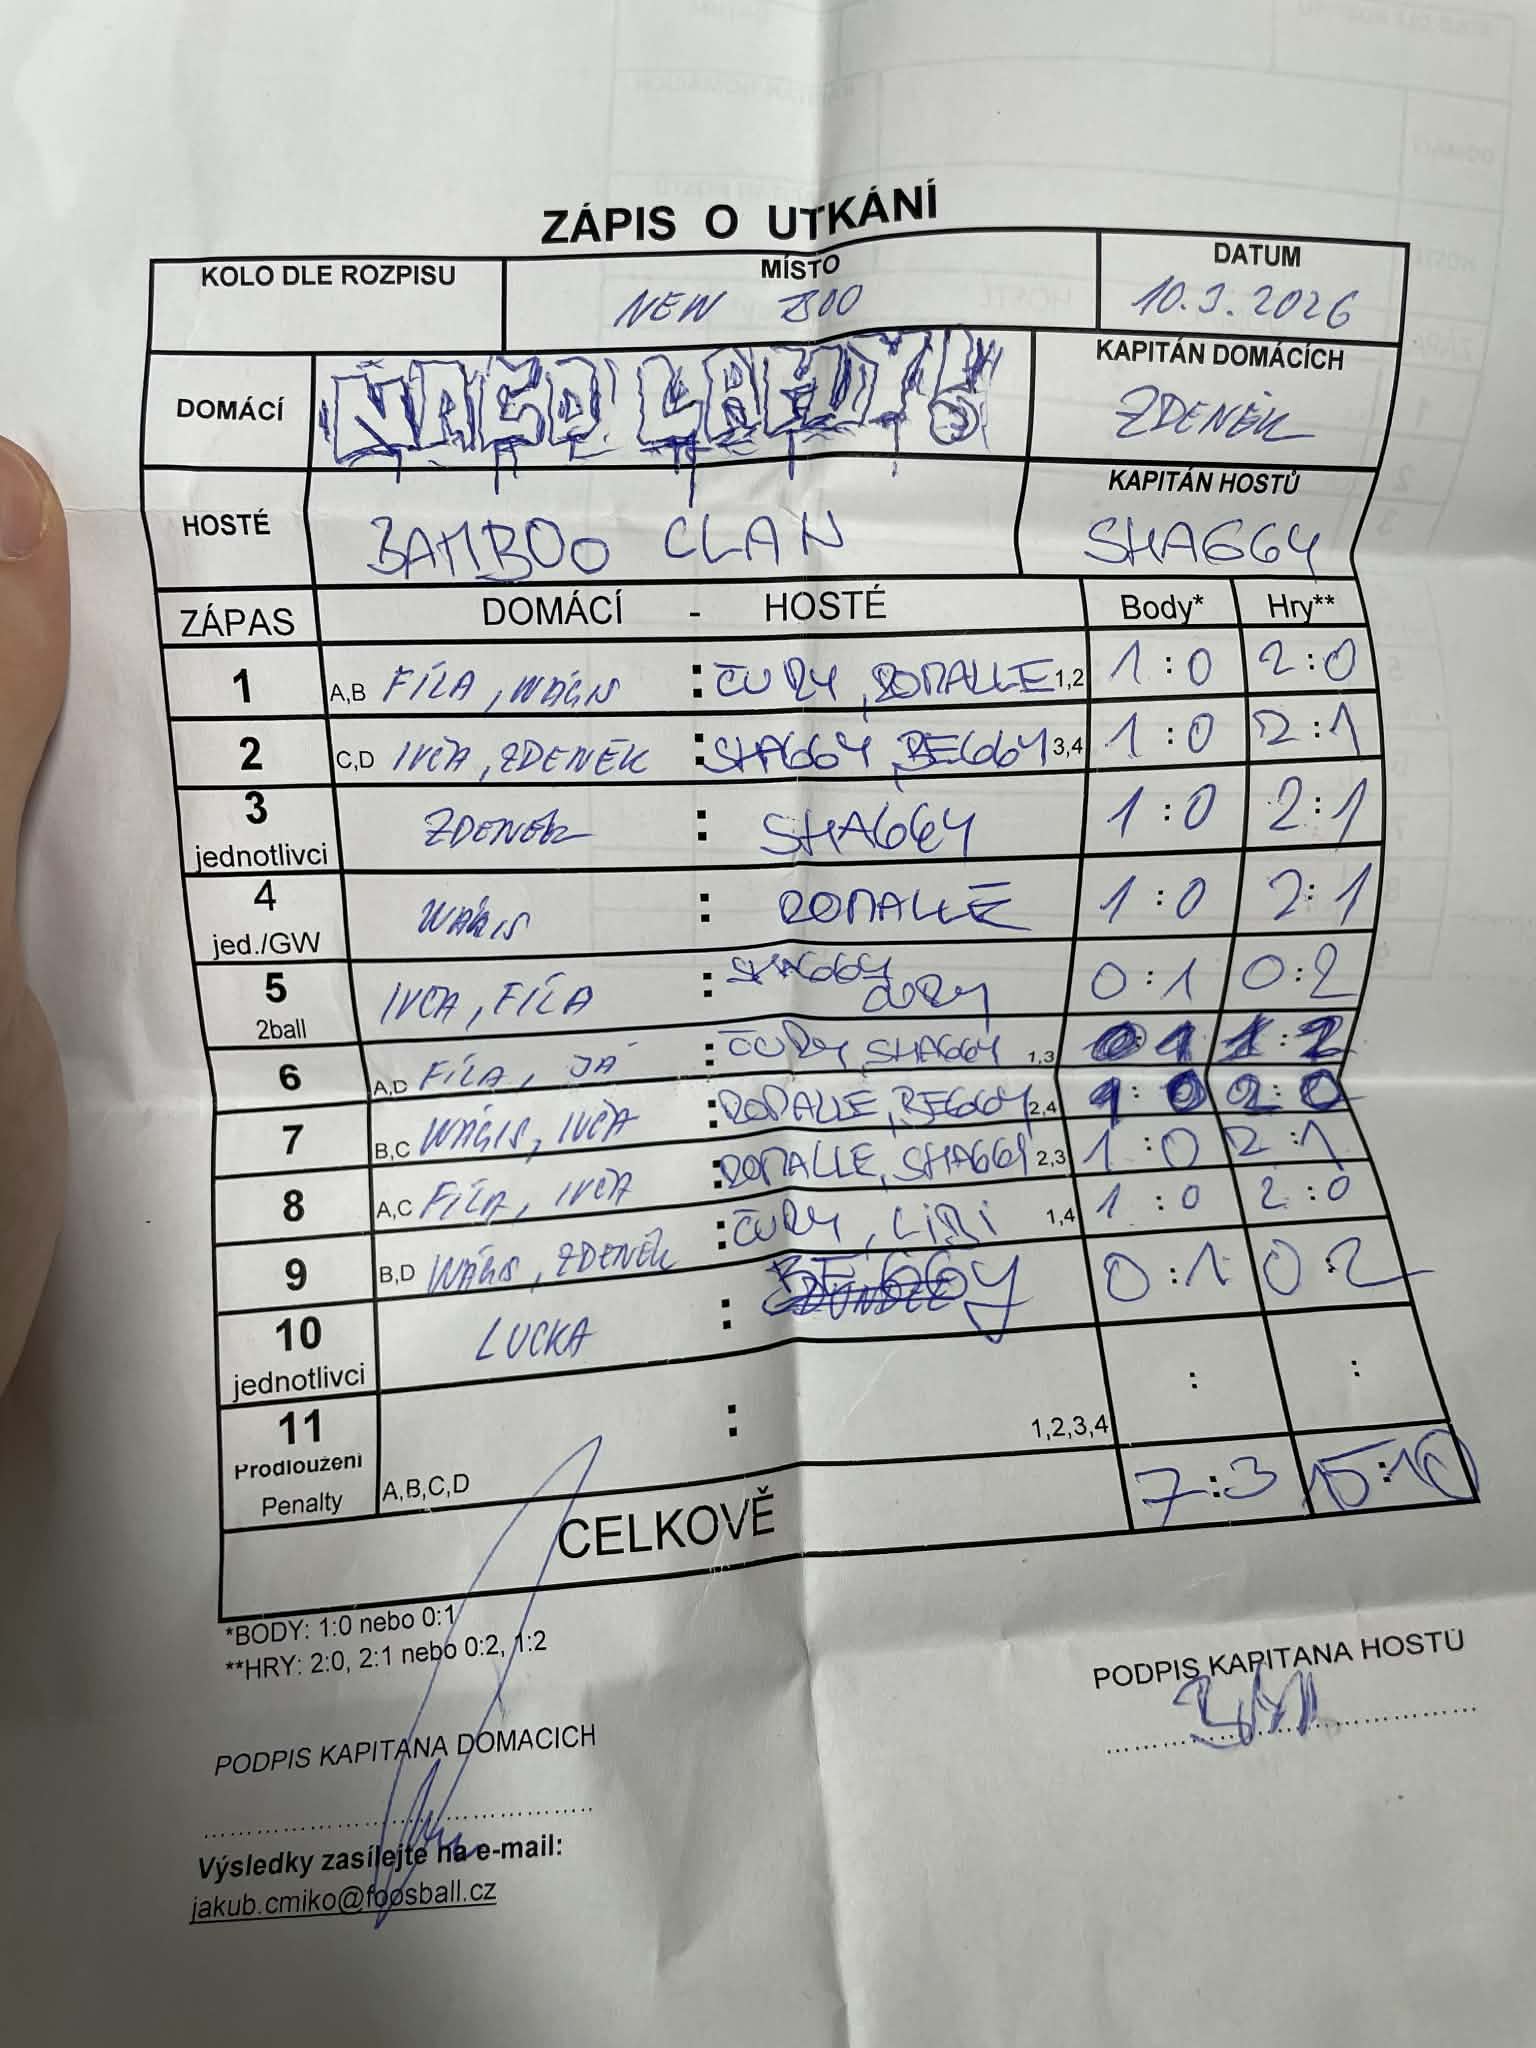 ZÁPIS O UTKÁNÍ
KOLO DLE ROZPISU MÍSTO DATUM
NEW ZOO 10.3.2026
DOMÁCÍ KAPITÁN DOMÁCÍCH
ZDENĚK
HOSTÉ BAMBOO CLAN KAPITÁN HOSTŮ
SHAGGY
ZÁPAS DOMÁCÍ - HOSTÉ Body* Hry**
1 A,B FÍLA, WÁGIS : ČURY, ROMALLE 1,2 1:0 2:0
2 C,D IVČA, ZDENĚK : SHAGGY, BEGGY 3,4 1:0 2:1
3 jednotlivci ZDENĚK : SHAGGY 1:0 2:1
4 jed./GW WÁGIS : ROMALLE 1:0 2:1
5 2ball IVČA, FÍLA : SHAGGY ČURY 0:1 0:2
6 A,D FÍLA, JÁ : ČURY, SHAGGY 1,3 0:1 1:2
7 B,C WÁGIS, IVČA : ROMALLE, BEGGY 2,4 1:0 2:0
8 A,C FÍLA, IVČA : ROMALLE, SHAGGY 2,3 1:0 2:1
9 B,D WÁGIS, ZDENĚK : ČURY, LIBI 1,4 1:0 2:0
10 jednotlivci LUCKA : BEGGY 0:1 0:2
11 Prodloužení Penalty A,B,C,D : 1,2,3,4 : :
CELKOVĚ 7:3 15:10
*BODY: 1:0 nebo 0:1
**HRY: 2:0, 2:1 nebo 0:2, 1:2
PODPIS KAPITANA DOMACICH PODPIS KAPITANA HOSTŮ
Výsledky zasílejte na e-mail:
jakub.cmiko@foosball.cz